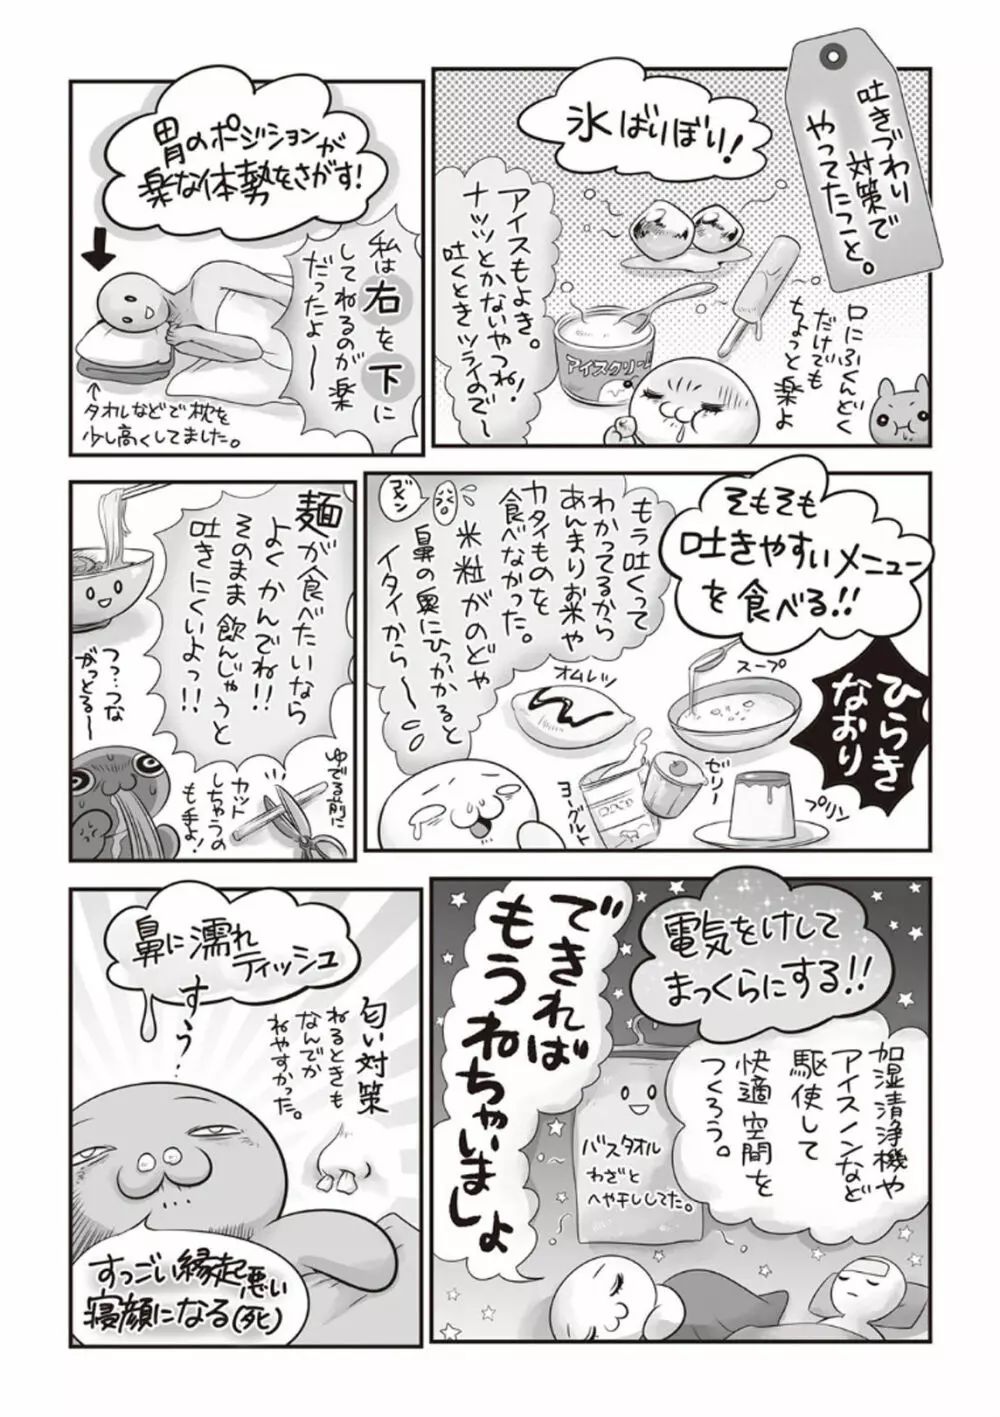 吐きづわり
対策で
やってたこと。
氷ばりぼり!
口にふくんどく
だけでも
ちょっと楽よ
アイスもよき。
ナッツとかないやつね!
吐くときツライので〜
アイスクリーム
胃のポジションが
楽な体勢をさがす!
私は右を下に
してねるのが楽
だったよ〜
↑
タオルなどで枕を
少し高くしてました。
そもそも
吐きやすいメニュー
を食べる!!
ひらき
なおり
もう吐くって
わかってるから
あんまりお米や
カタイものを
食べなかった。
米粒がのどや
鼻の奥にひっかかると
イタイから〜
ゴメン
スープ
オムレツ
ゼリー
ヨーグルト
プリン
麺が食べたいなら
よくかんでね!!
そのまま飲んじゃうと
吐きにくいよっ!!
つ…つな
がっとる〜
ゆでる前に
カット
しちゃうの
も手よ!
電気をけして
まっくらにする!!
加湿清浄機や
アイスノンなど
駆使して
快適空間を
つくろう。
バスタオル
わざと
へや干ししてた。
できれば
もうねちゃいましょ
鼻に濡れ
ティッシュ
すぅ
匂い対策
ねるときも
なんでか
ねやすかった。
すっごい縁起悪い
寝顔になる(死)